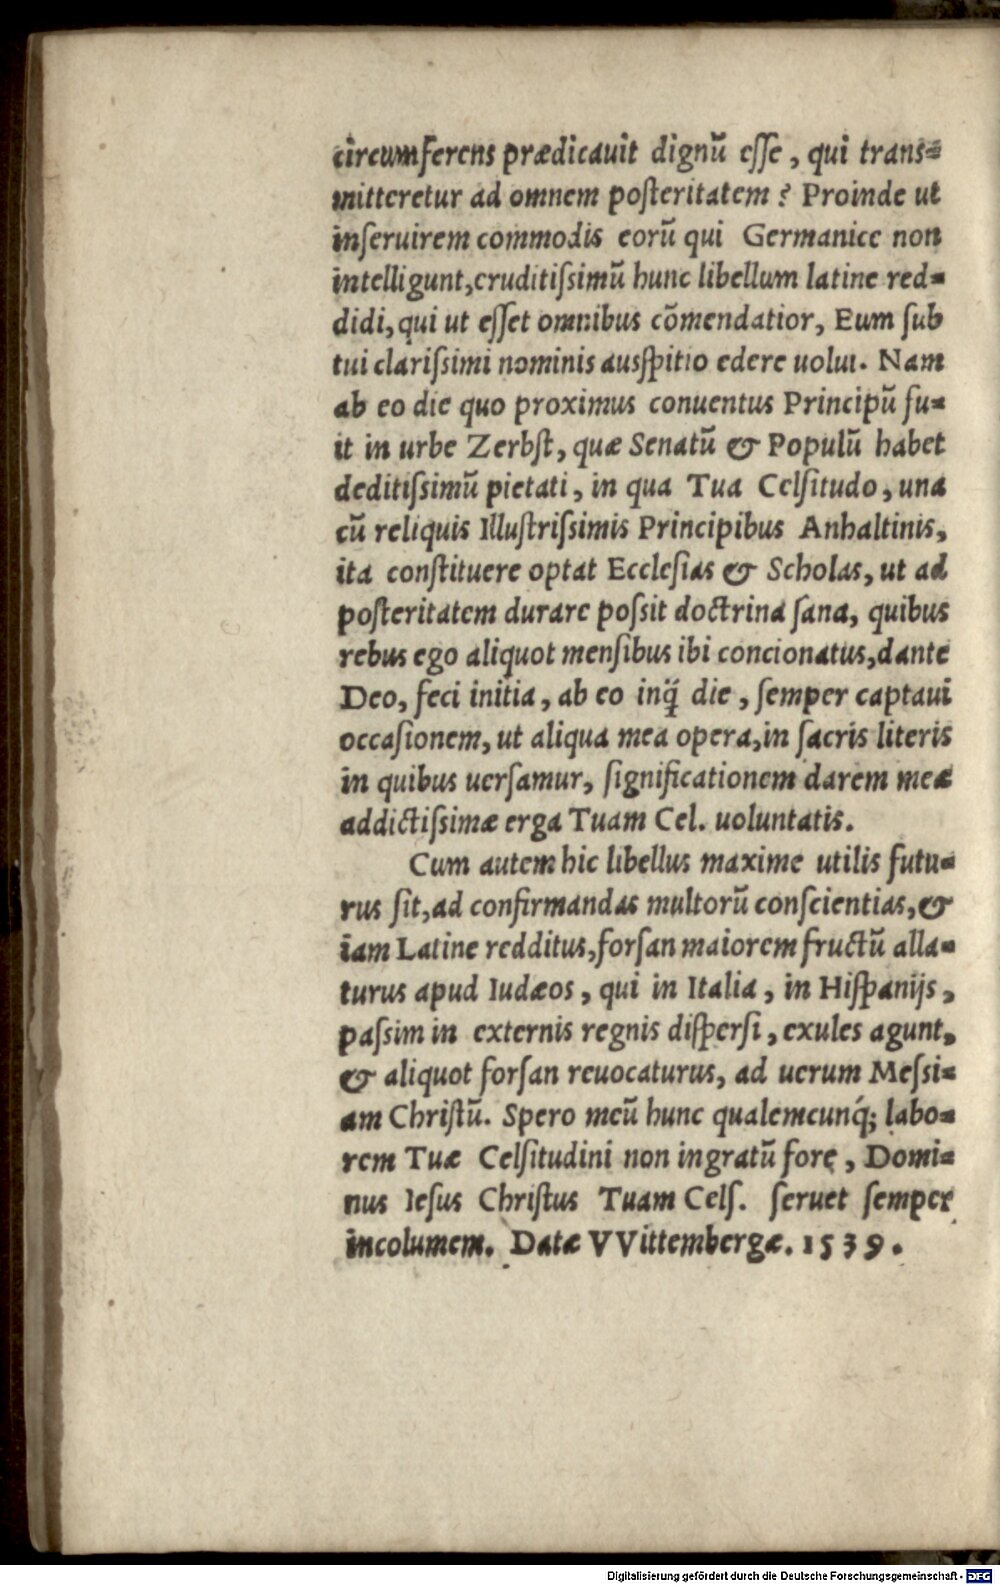 circumferens prædicauit dignū esse, qui trans=
mitteretur ad omnem posteritatem? Proinde ut
inseruirem commodis eorū qui Germanice non
intelligunt, eruditissimū hunc libellum latine red=
didi, qui ut esset omnibus cōmendatior, Eum sub
tui clarissimi nominis ausspitio edere uolui. Nam
ab eo die quo proximus conuentus Principū fu=
it in urbe Zerbst, quæ Senatū & Populū habet
deditissimū pietati, in qua Tua Celsitudo, una
cū reliquis Illustrissimis Principibus Anhaltinis,
ita constituere optat Ecclesias & Scholas, ut ad
posteritatem durare possit doctrina sana, quibus
rebus ego aliquot mensibus ibi concionatus, dante
Deo, feci initia, ab eo inq̃ die, semper captaui
occasionem, ut aliqua mea opera, in sacris literis
in quibus uersamur, significationem darem meæ
addictissimæ erga Tuam Cel. uoluntatis.
Cum autem hic libellus maxime utilis futu=
rus sit, ad confirmandas multorū conscientias, &
iam Latine redditus, forsan maiorem fructū alla=
turus apud Iudæos, qui in Italia, in Hispanijs,
passim in externis regnis dispersi, exules agunt,
& aliquot forsan reuocaturus, ad uerum Messi=
am Christū. Spero meū hunc qualemcunq́; labo=
rem Tuæ Celsitudini non ingratū fore, Domi=
nus Iesus Christus Tuam Cels. seruet semper
incolumem. Datæ VVittembergæ. 1539.
Digitalisierung gefördert durch die Deutsche Forschungsgemeinschaft - DFG